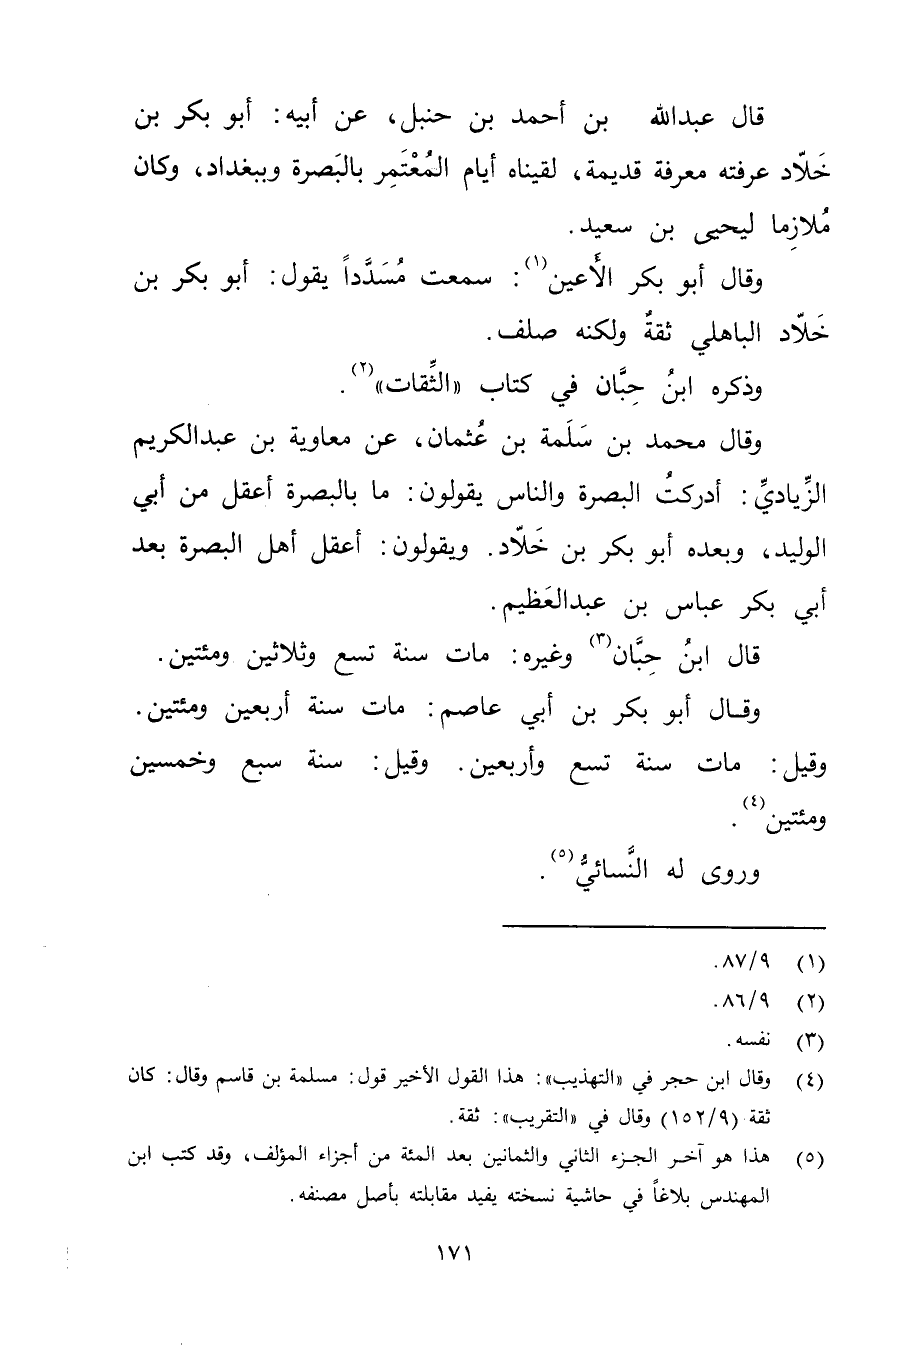 قال عبدالله بن أحمد بن حنبل، عن أبيه: أبو بكر بن
خَلّاد عرفته معرفة قديمة، لقيناه أيام المُعْتَمِر بالبَصرة وببغداد، وكان
مُلازِما ليحيى بن سعيد.
وقال أبو بكر الأَعين(١): سمعت مُسَدَّداً يقول: أبو بكر بن
خَلّاد الباهلي ثقةٌ ولكنه صلف.
وذكره ابنُ حِبَّان في كتاب «الثِّقات»(٢).
وقال محمد بن سَلَمة بن عُثمان، عن معاوية بن عبدالكريم
الزِّياديِّ: أدركتُ البصرة والناس يقولون: ما بالبصرة أعقل من أبي
الوليد، وبعده أبو بكر بن خَلّاد. ويقولون: أعقل أهل البصرة بعد
أبي بكر عباس بن عبدالعَظيم.
قال ابنُ حِبَّان(٣) وغيره: مات سنة تسع وثلاثين ومئتين.
وقال أبو بكر بن أبي عاصم: مات سنة أربعين ومئتين.
وقيل: مات سنة تسع وأربعين. وقيل: سنة سبع وخمسين
ومئتين(٤).
وروى له النَّسائيُّ(٥).
(١) ٨٧/٩.
(٢) ٨٦/٩.
(٣) نفسه.
(٤) وقال ابن حجر في «التهذيب»: هذا القول الأخير قول: مسلمة بن قاسم وقال: كان
ثقة (١٥٢/٩) وقال في «التقريب»: ثقة.
(٥) هذا هو آخر الجزء الثاني والثمانين بعد المئة من أجزاء المؤلف، وقد كتب ابن
المهندس بلاغاً في حاشية نسخته يفيد مقابلته بأصل مصنفه.
١٧١